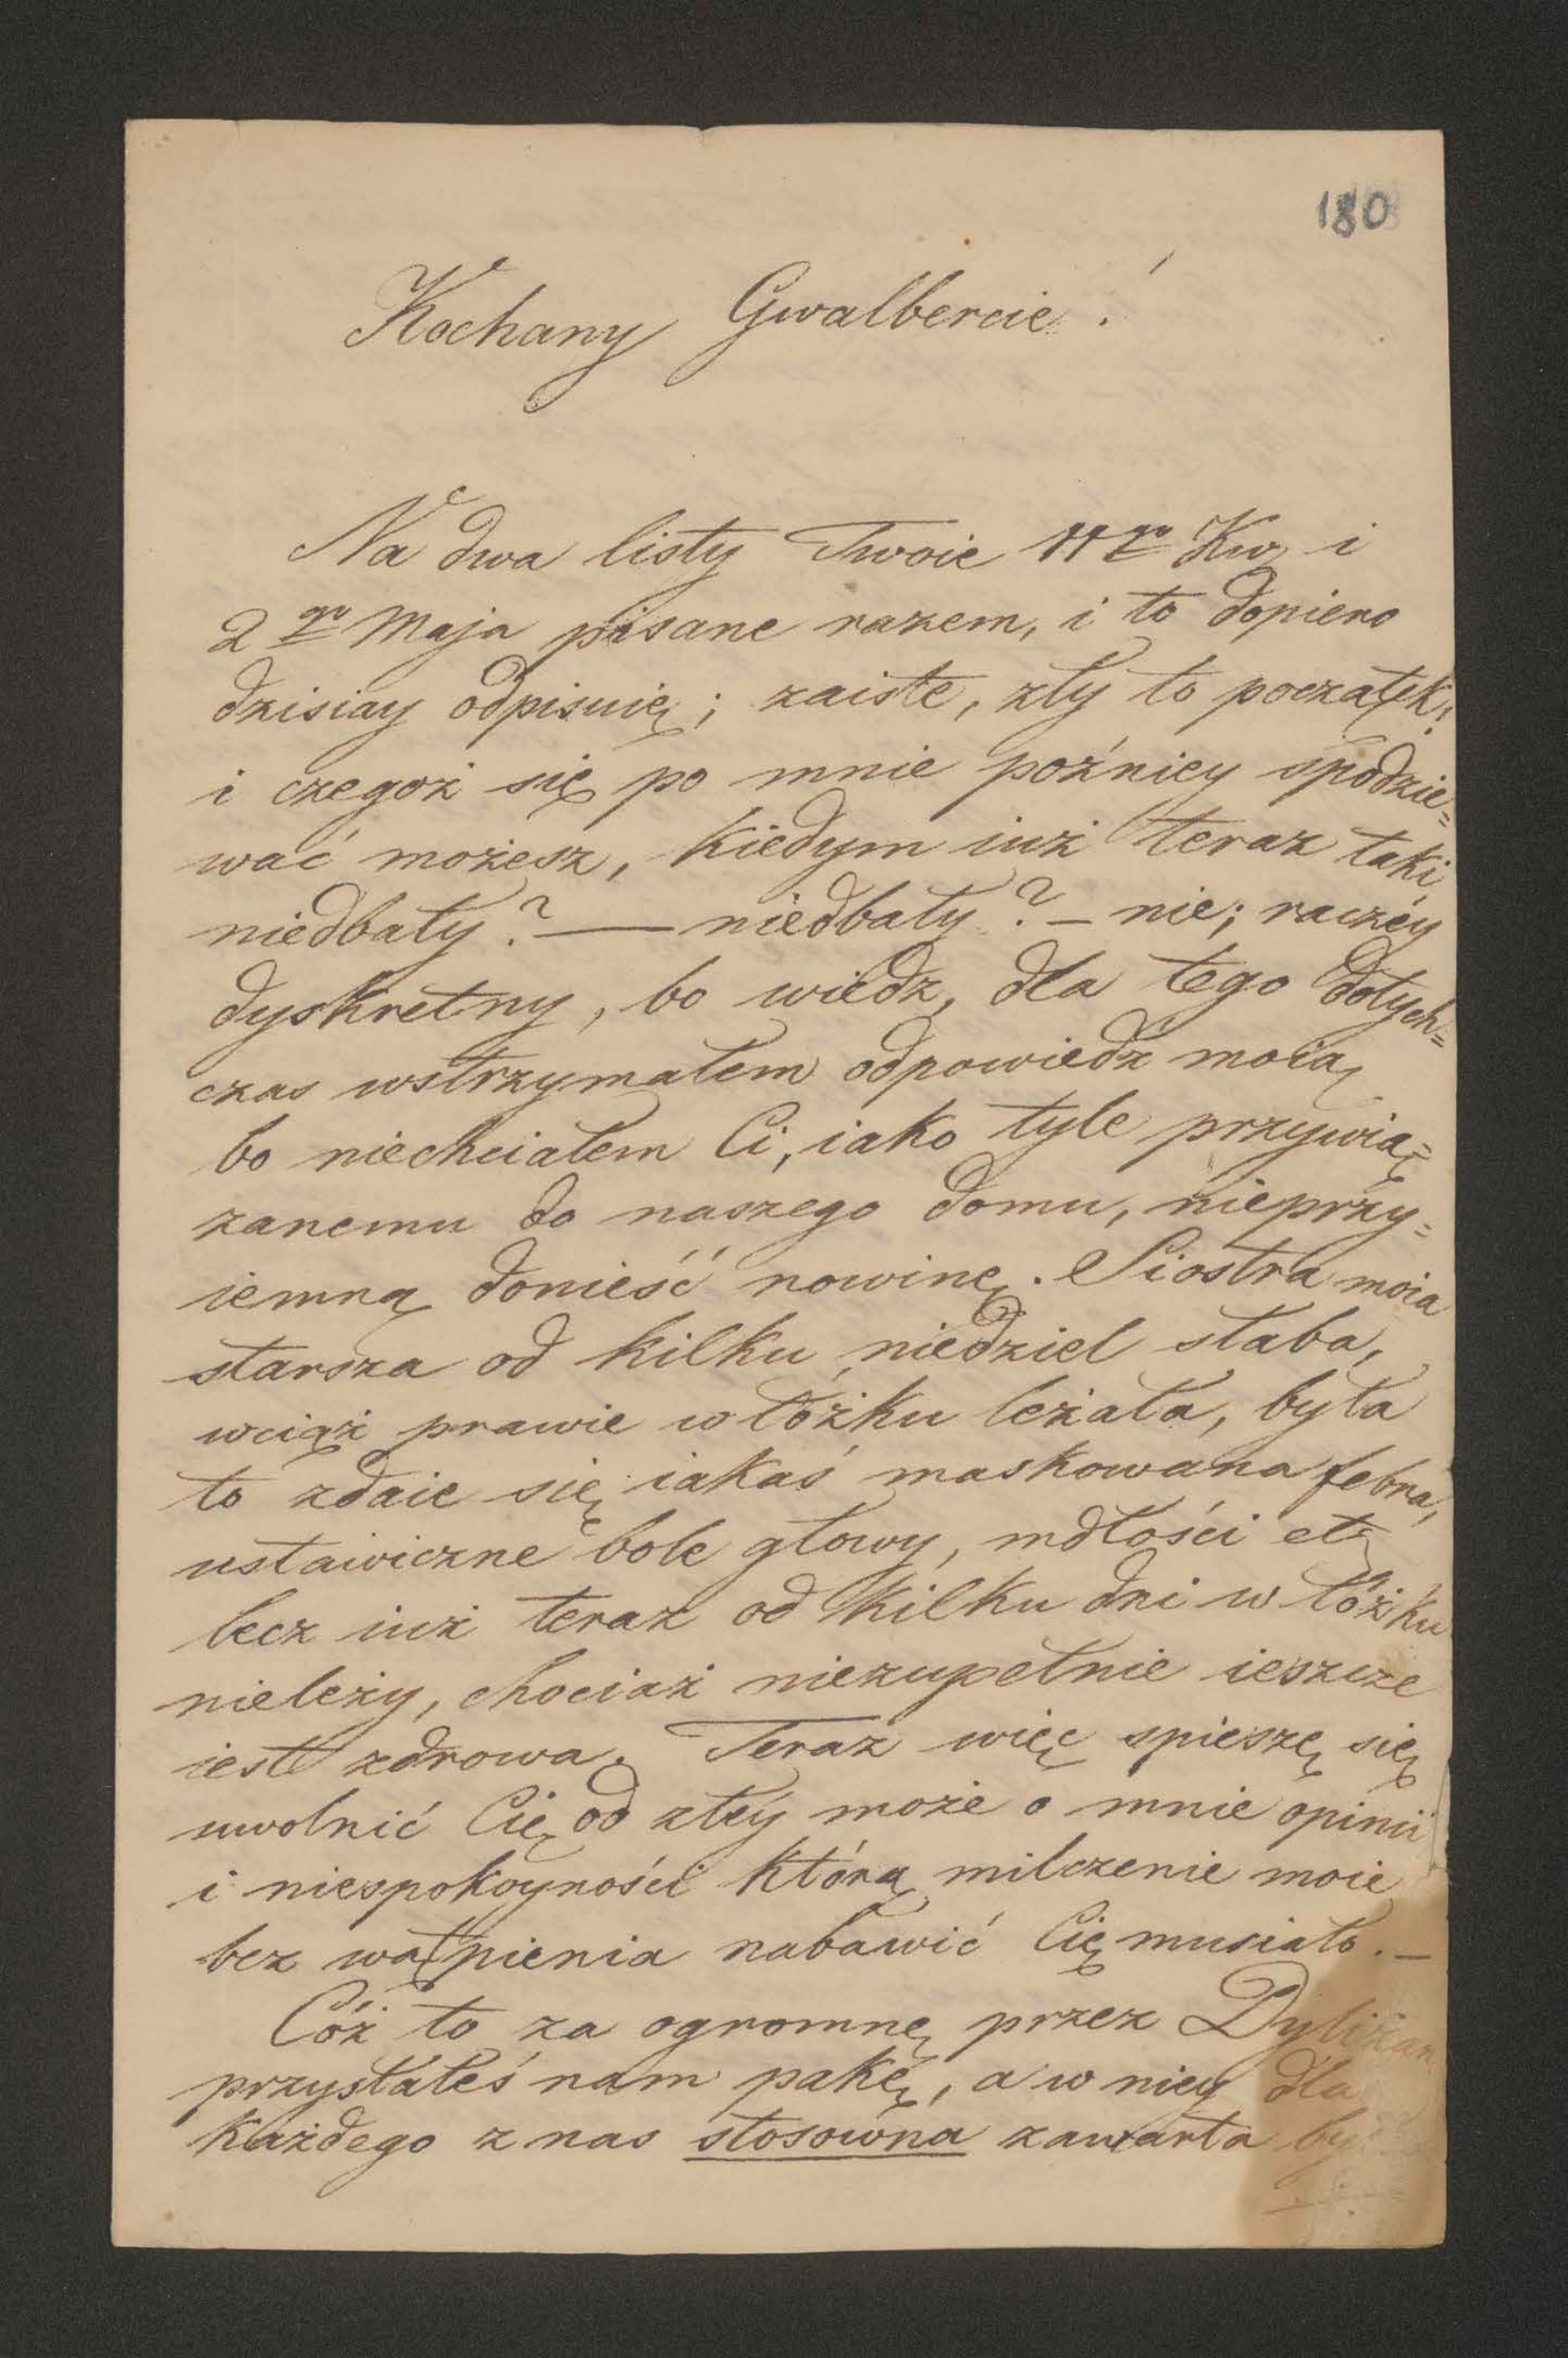 180
Kochany Gwalbercie!
Na dwa listy Twoie 11go Kw i
2go Maja pisane razem, i to dopiero
dzisiay odpisuię; zaiste, zły to początek!
i czegoż się po mnie poźniey spodzie=
wać możesz, kiedym iuż teraz taki
niedbały? — niedbały? – nie; raczéy
dyskretny, bo wiedz, dla tego dotych=
czas wstrzymałem odpowiedź moią
bo niechciałem Ci, iako tyle przywią=
zanemu do naszego domu, nieprzy=
iemną donieść nowinę. Siostra moia
starsza od kilku niedziel słaba,
wciąż prawie w łóżku leżała, była
to zdaie się iakaś maskowana febra,
ustawiczne bole głowy, mdłości etc
lecz iuż teraz od kilku dni w łóżku
nieleży, chociaż niezupełnie ieszcze
iest zdrowa. Teraz więc spieszę się
uwolnić Cię od złéy może o mnie opinii
i niespokoyności którą milczenie moie
bez wątpienia nabawić Cię musiało. –
Cóż to za ogromnę przez Dyliżan
przysłałeś nam pakę, a w niey dla
każdego z nas stosowna zawarta